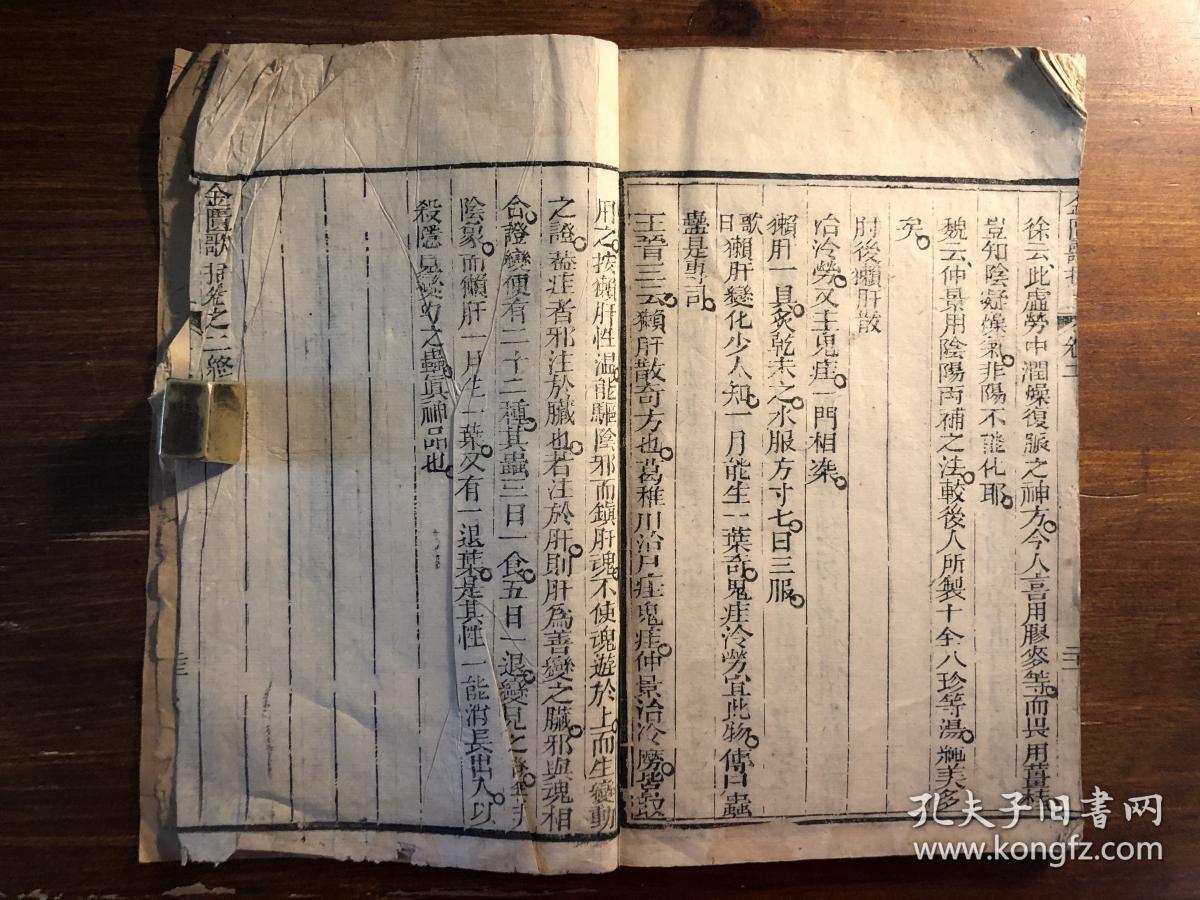 徐云此虛勞中潤燥復脈之神方今人喜用膠麥等而畏用薑桂
豈知陰凝燥氣非陽不能化耶
魏云仲景用陰陽兩補之法較後人所製十全八珍等湯純美多
矣
肘後獺肝散
治冷勞又主鬼疰一門相染
獺肝一具炙乾末之水服方寸匕日三服
歌曰獺肝變化少人知一月能生一葉奇鬼疰冷勞宜此物傳尸蟲
蠱是專司
王晉三云獺肝散奇方也葛稚川治尸疰鬼疰仲景治冷勞皆取
用之按獺肝性溫能驅陰邪而鎮肝魂不使魂遊於上而生變動
之證蓋疰者邪注於臟也若注於肝則肝為善變之臟邪與魂相
合證變便有二十二種其蟲三日一食五日一退變見之證
陰象而獺肝一月生一葉又有一退葉是其性一能消長出入以
殺隱見變幻之蟲真神品也
金匱歌括卷之二終
三
孔夫子旧书网
www.kongfz.com